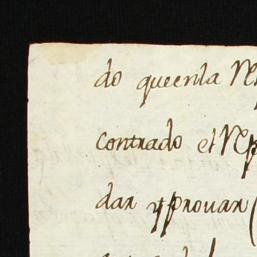 do queenla
contrado el
dar yprouar